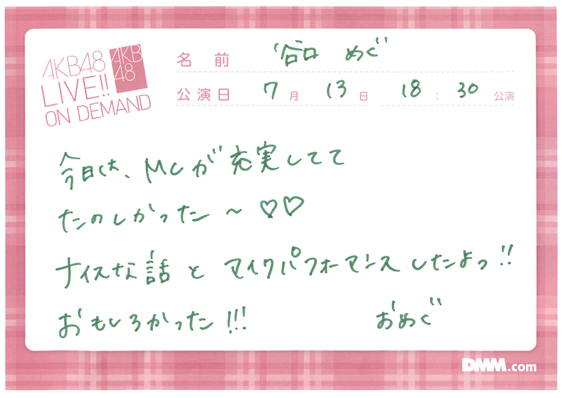 AKB48
LIVE!!
ON DEMAND
AKB
48
名前 谷口 めぐ
公演日 7月 13日 18:30 公演
今日は、MCが充実してて
たのしかった~♡♡
ナイスな話とマイクパフォーマンスしたよっ!!
おもしろかった!!!
おめぐ
DMM.com